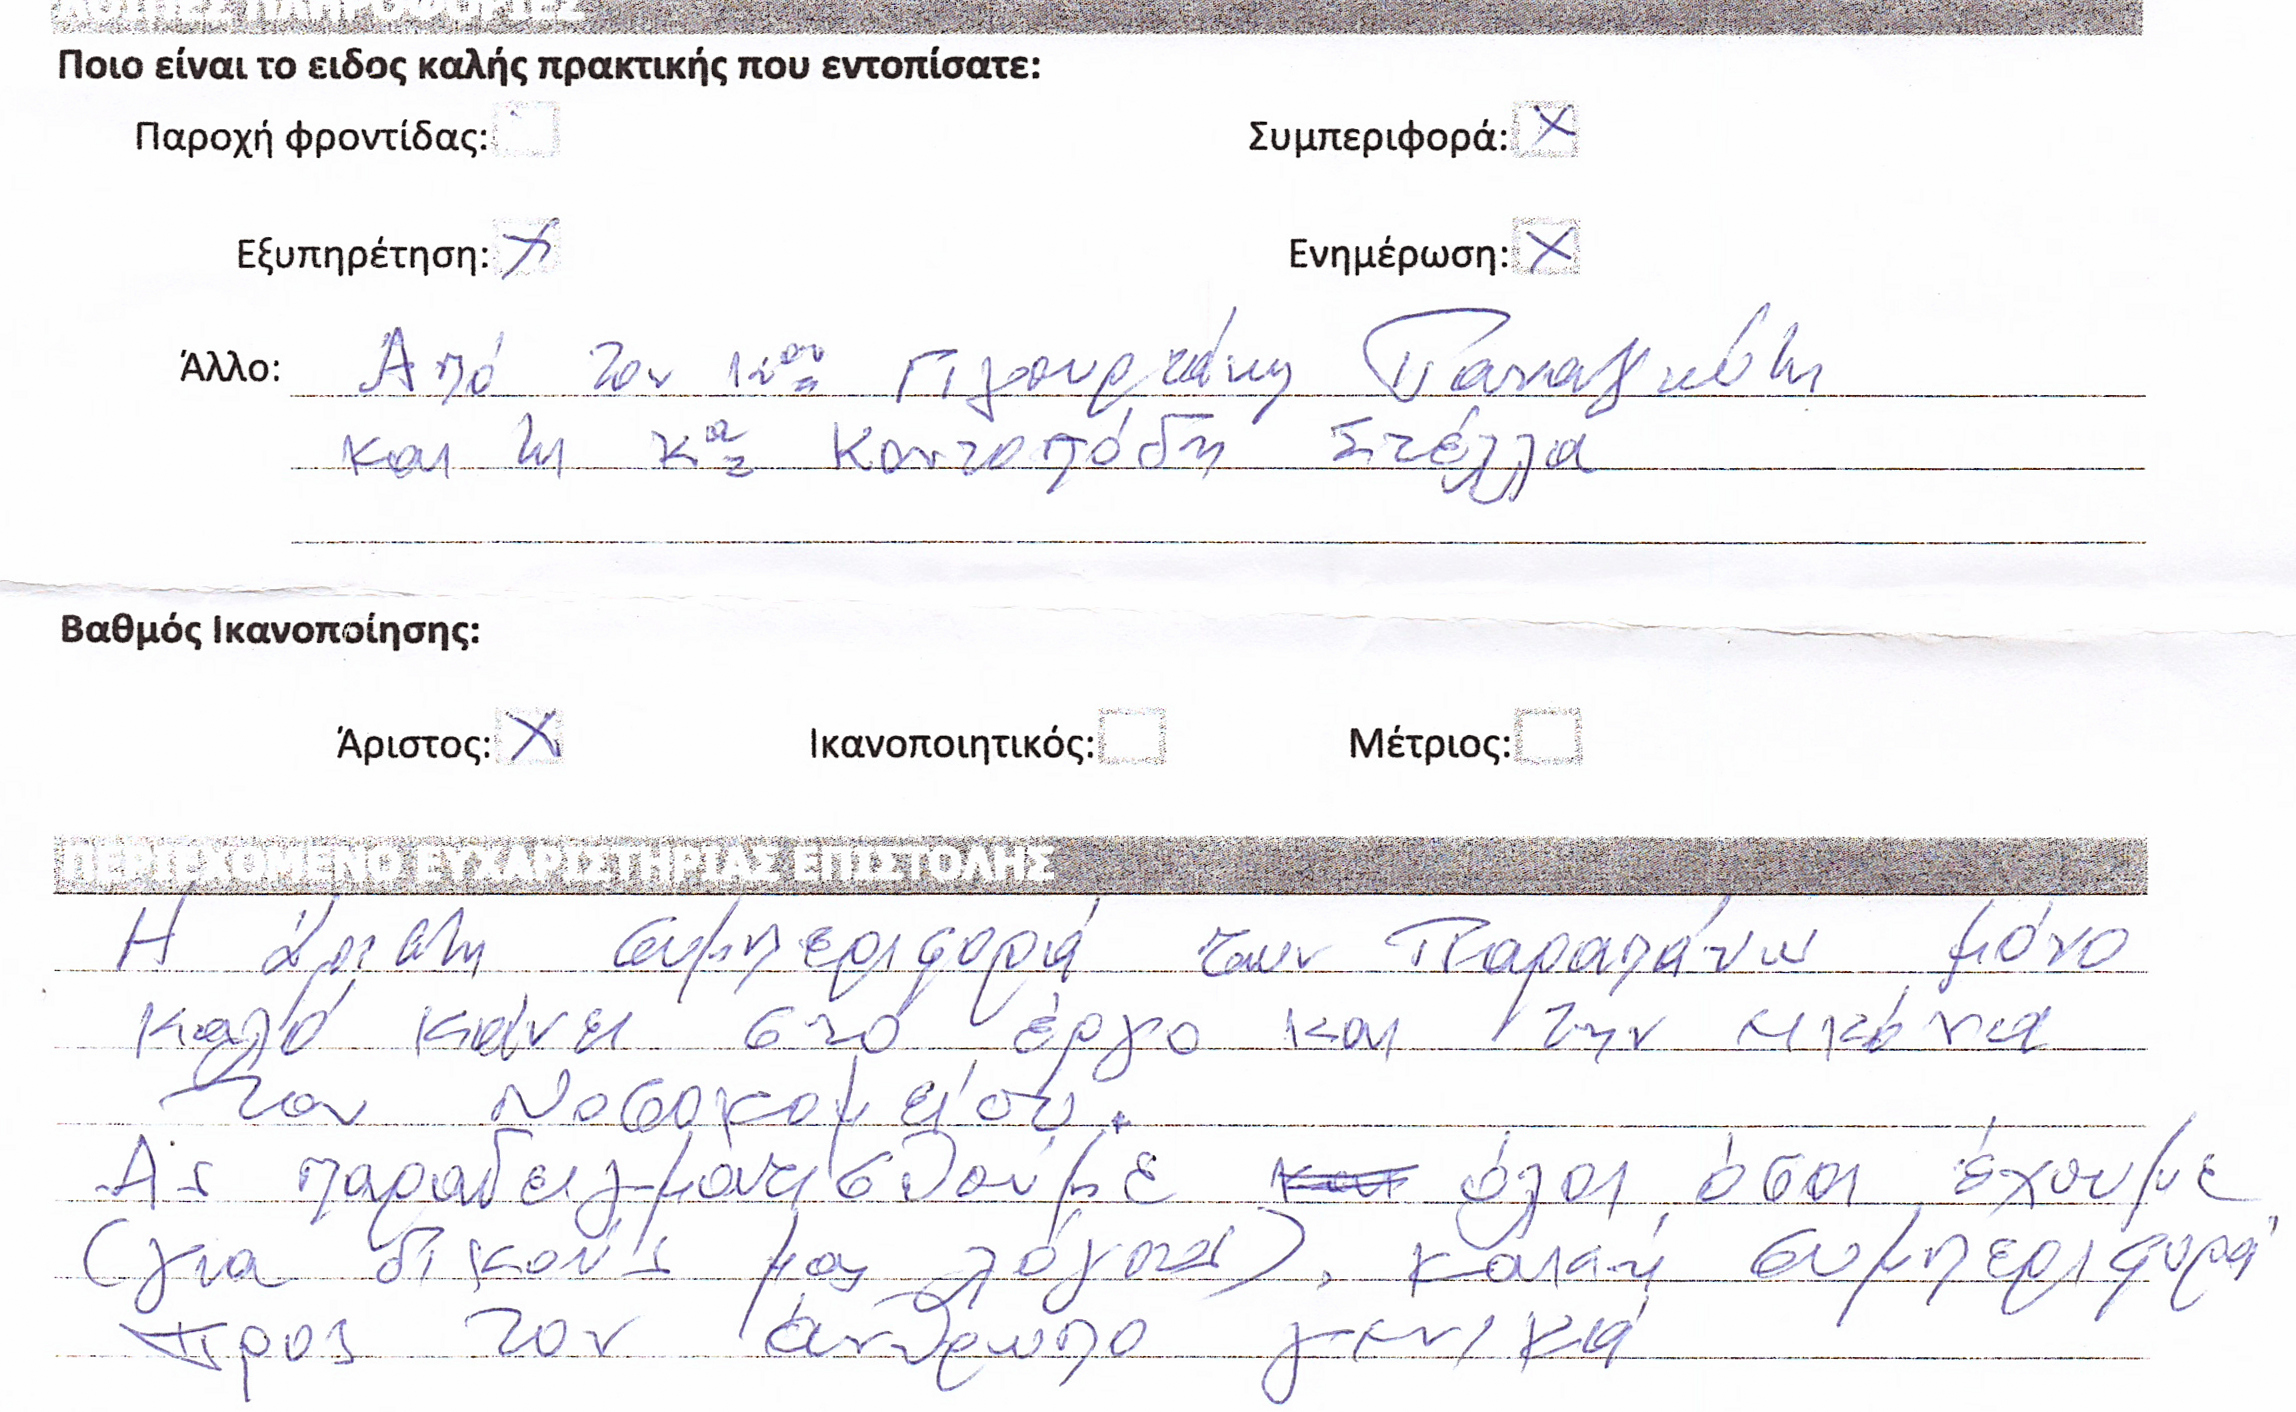 ΛΟΙΠΕΣ ΠΛΗΡΟΦΟΡΙΕΣ
Ποιο είναι το ειδος καλής πρακτικής που εντοπίσατε:
Παροχή φροντίδας: Συμπεριφορά: X
Εξυπηρέτηση: X Ενημέρωση: X
Άλλο: Από τον κον Παναγιώτη
και τη κα Κοντοπόδη Στέλλα
Βαθμός Ικανοποίησης:
Άριστος: X Ικανοποιητικός: Μέτριος:
ΠΕΡΙΕΧΟΜΕΝΟ ΕΥΧΑΡΙΣΤΗΡΙΑΣ ΕΠΙΣΤΟΛΗΣ
Η άριστη συμπεριφορά των Παραπάνω μόνο
καλό κάνει στο έργο και την εικόνα
του Νοσοκομείου.
Ας παραδειγματισθούμε όλοι όσοι έχουμε
(για δικούς μας λόγους), κακή συμπεριφορά
προς τον άνθρωπο γενικά